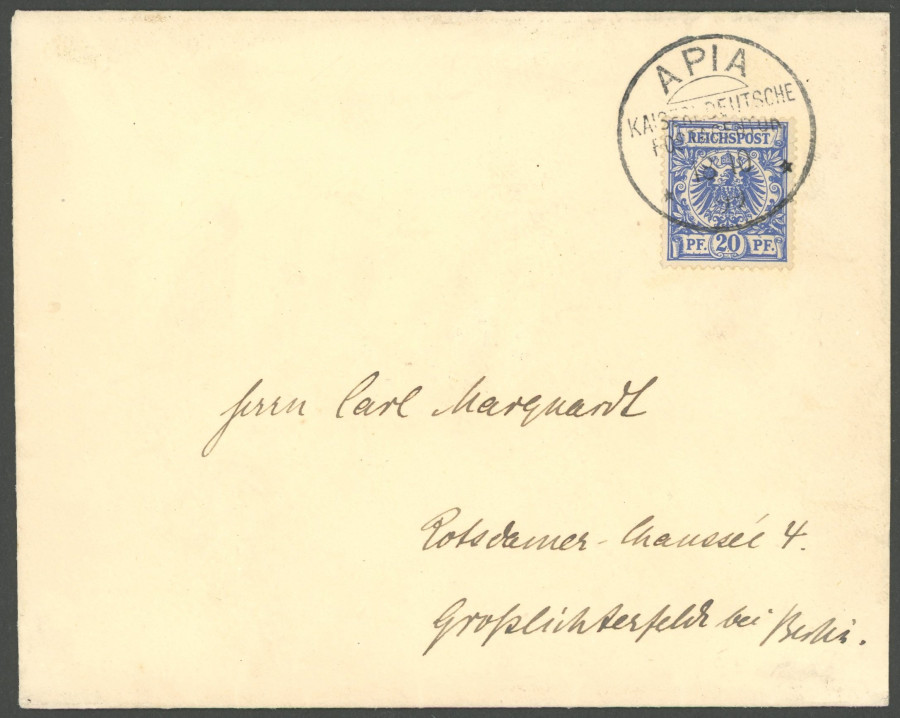 APIA
KAISERL. DEUTSCHE
POSTAGENTUR
REICHSPOST
PF. 20 PF.
Herrn Carl Marquardt
Potsdamer-Chaussée 4.
Großlichterfelde bei Berlin.